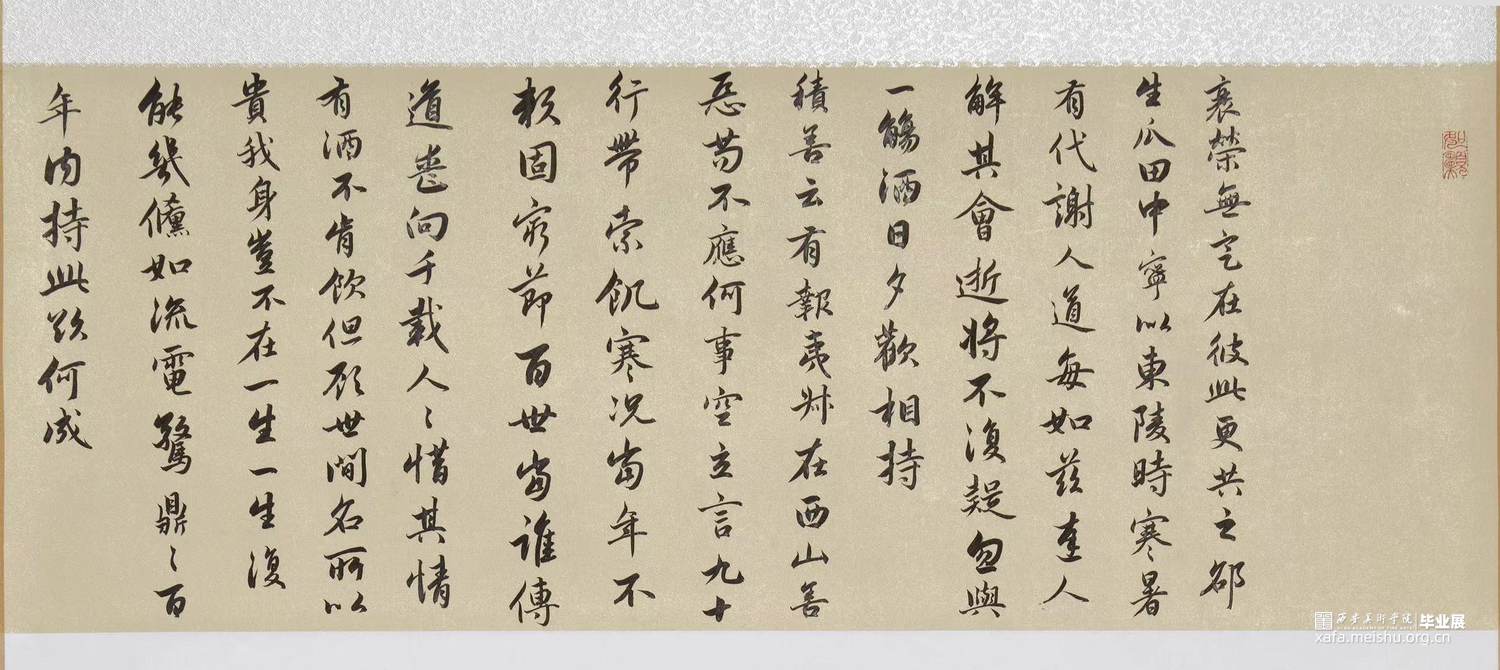 衰榮無定在彼此更共之邵
生瓜田中寧以東陵時寒暑
有代謝人道每如茲達人
解其會逝將不復疑忽與
一觴酒日夕歡相持
積善云有報夷叔在西山善
惡苟不應何事空立言九十
行帶索飢寒況當年不
賴固窮節百世當誰傳
道喪向千載人〻惜其情
有酒不肯飲但顧世間名所以
貴我身豈不在一生一生復
能幾儵如流電驚鼎〻百
年內持此欲何成
西安美術學院 毕业展
xafa.meishu.org.cn